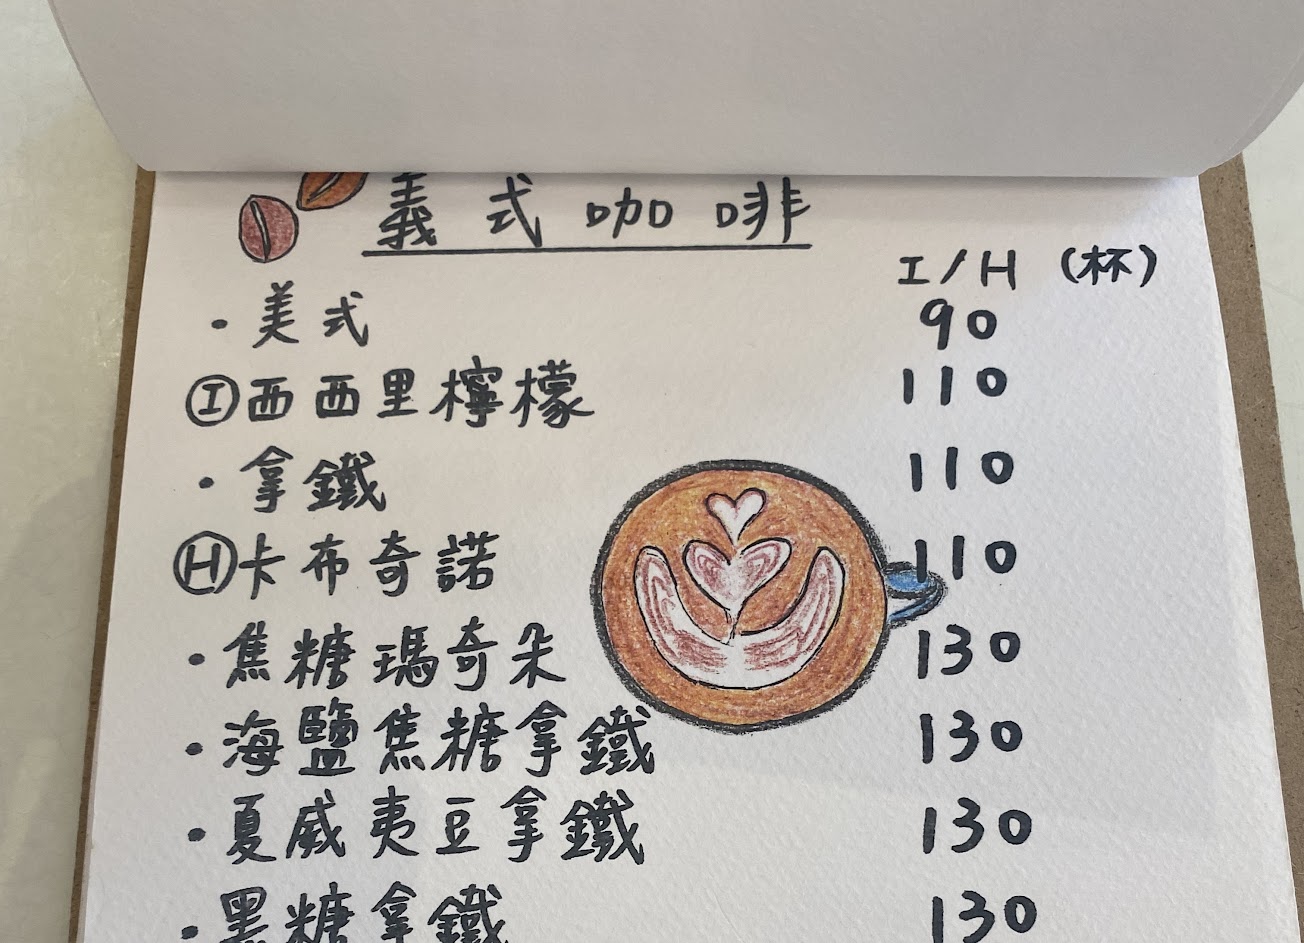 義式咖啡
I/H (杯)
・美式 90
Ⓘ西西里檸檬 110
・拿鐵 110
Ⓗ卡布奇諾 110
・焦糖瑪奇朵 130
・海鹽焦糖拿鐵 130
・夏威夷豆拿鐵 130
・黑糖拿鐵 130